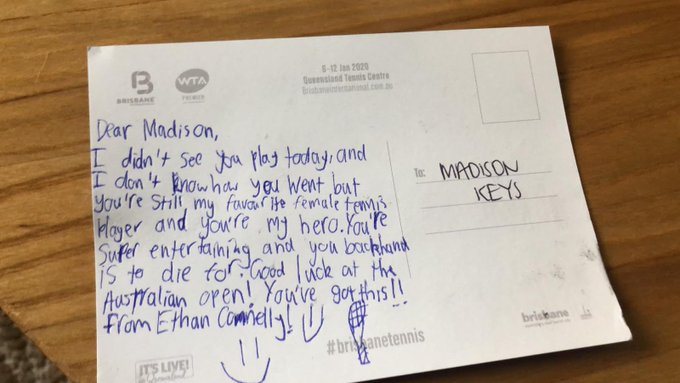 BRISBANE
WTA
PREMIER
6-12 Jan 2020
Queensland Tennis Centre
Brisbaneinternational.com.au
Dear Madison,
I didn't see you play today, and
I don't know how you went but
you're still my favourite female tennis
player and you're my hero. You're
super entertaining and you backhand
is to die for. Good luck at the
Australian open! You've got this!!
From Ethan Connelly!
To: MADISON
KEYS
#brisbanetennis
IT'S LIVE!
Queensland
brisbane